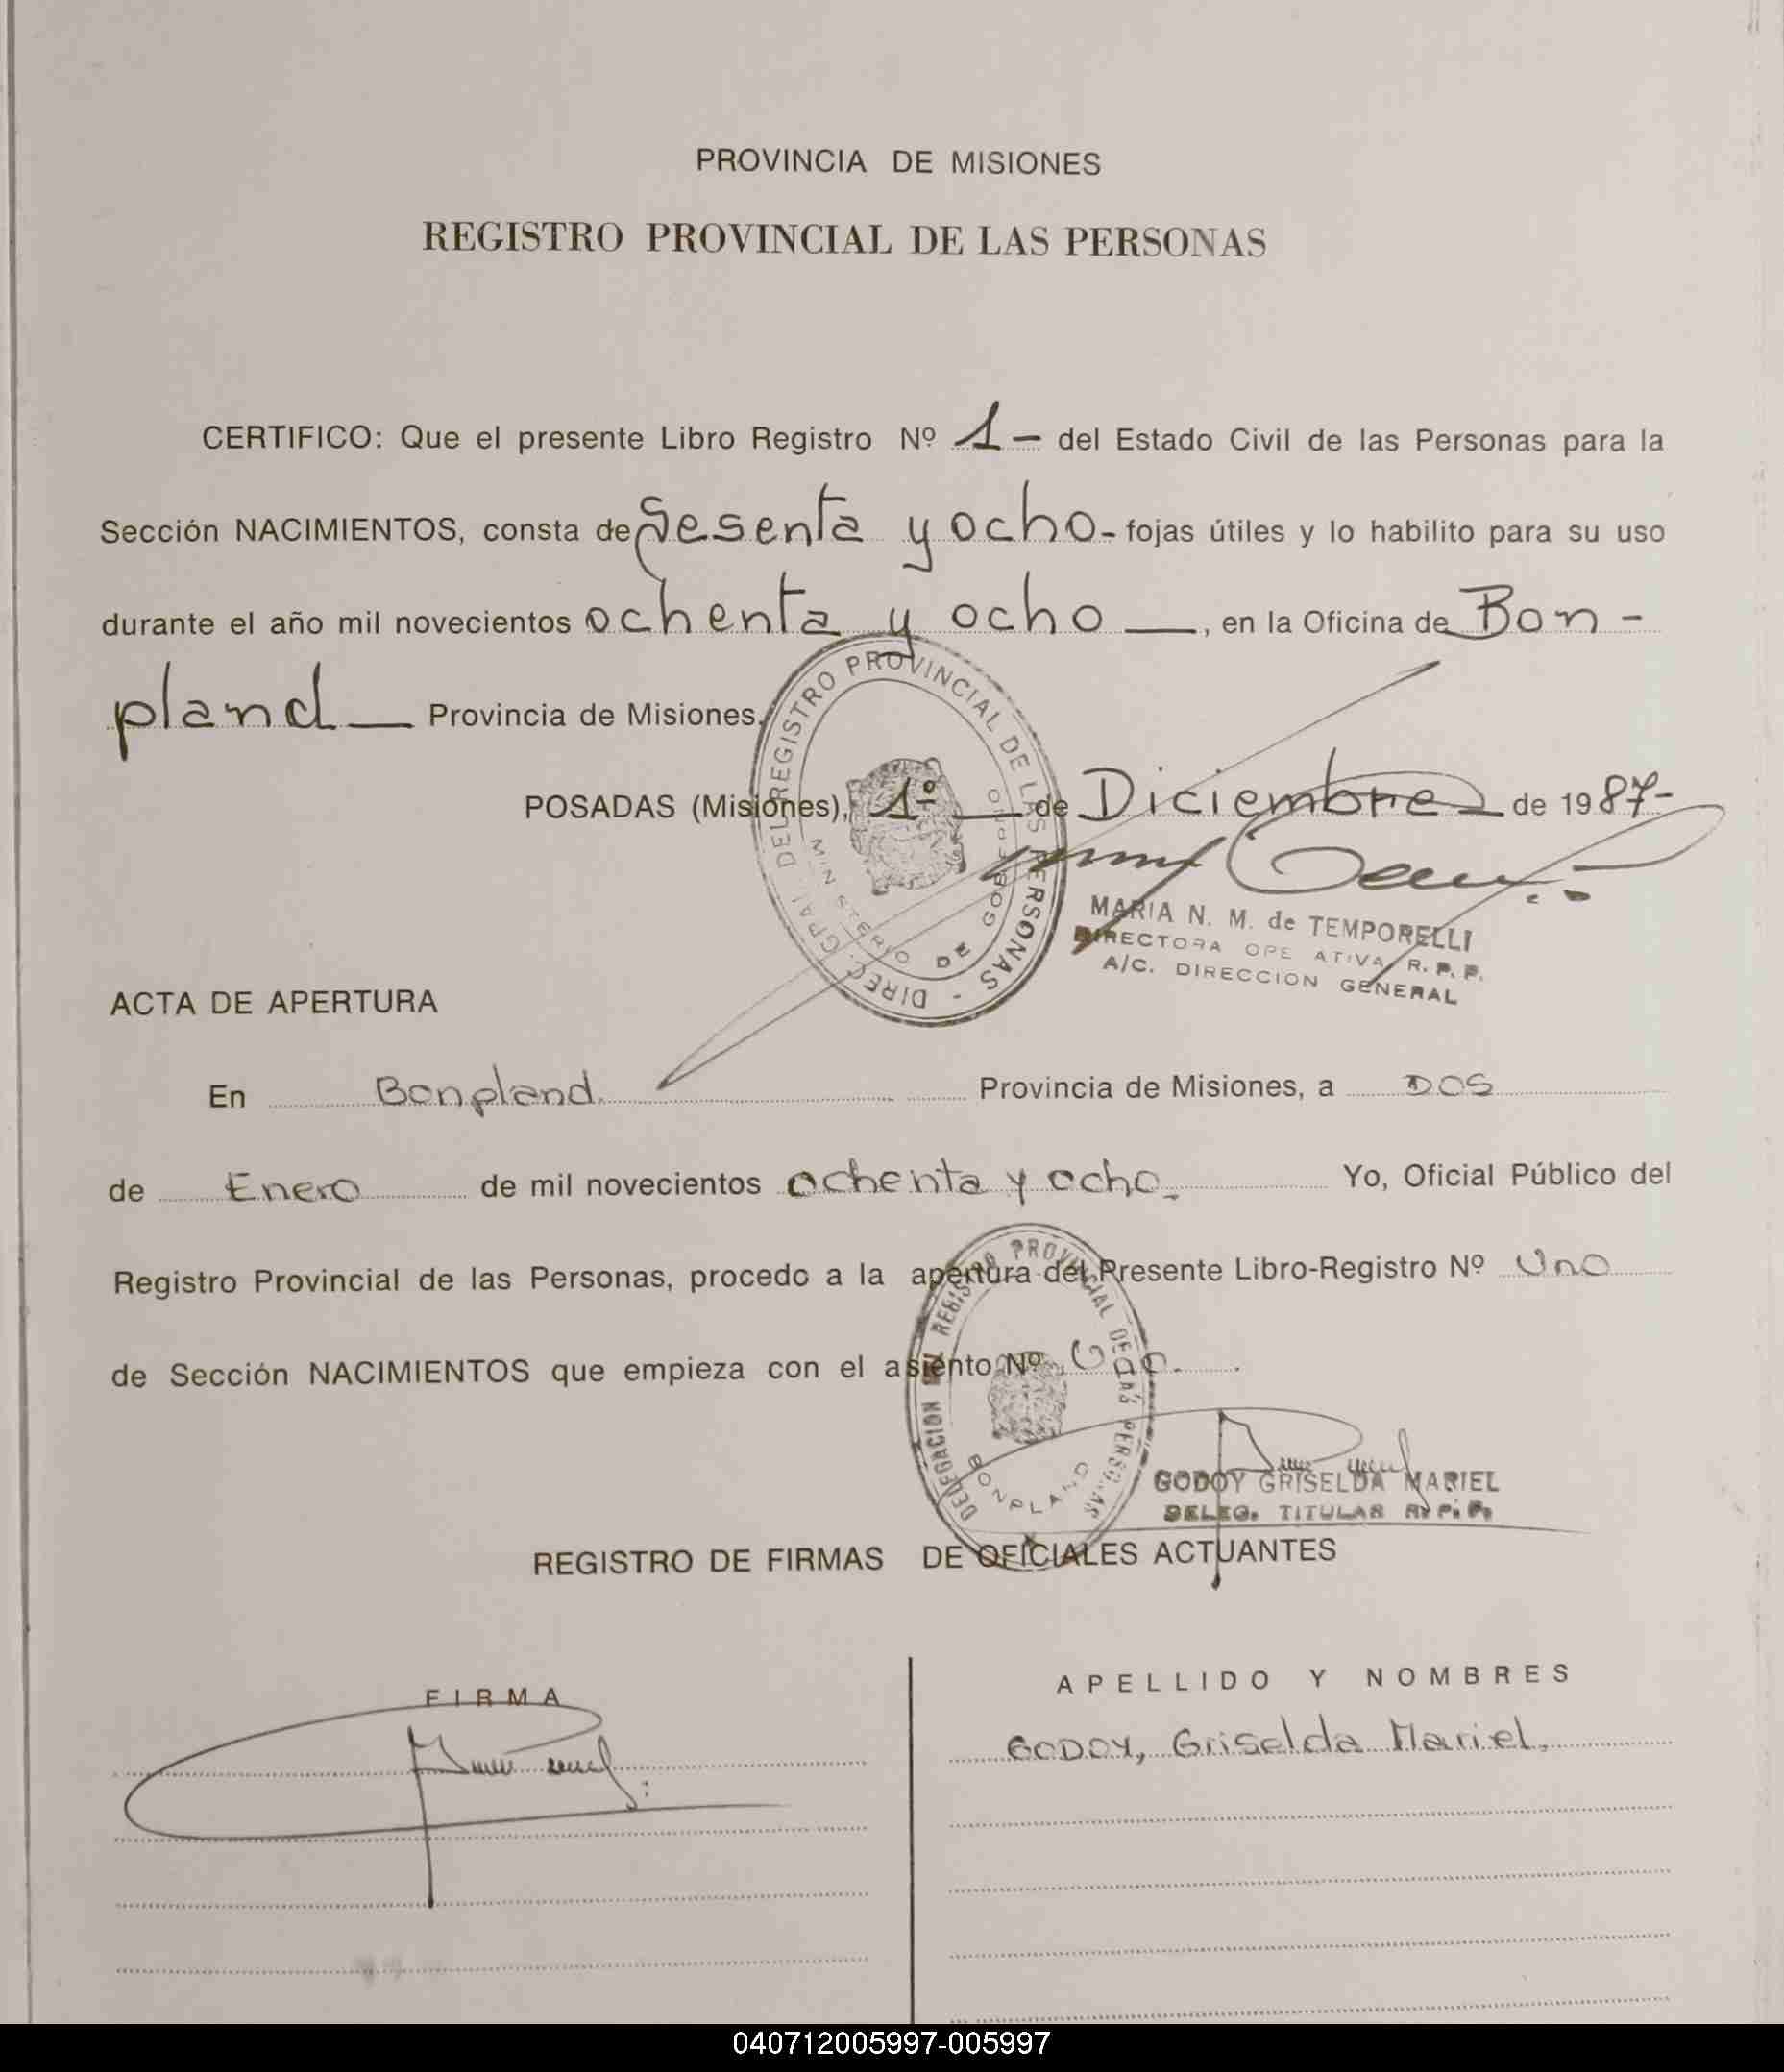 PROVINCIA DE MISIONES
REGISTRO PROVINCIAL DE LAS PERSONAS
CERTIFICO: Que el presente Libro Registro Nº 1 - del Estado Civil de las Personas para la
Sección NACIMIENTOS, consta de Sesenta y ocho - fojas útiles y lo habilito para su uso
durante el año mil novecientos ochenta y ocho —, en la Oficina de Bon -
pland — Provincia de Misiones.
POSADAS (Misiones), 1º de Diciembre de 1987-
DIREC. GRAL DEL REGISTRO PROVINCIAL DE LAS PERSONAS -
MINISTERIO DE GOBIERNO
MARIA N. M. de TEMPORELLI
DIRECTORA OPE ATIVA R. P. P.
A/C. DIRECCION GENERAL
ACTA DE APERTURA
En Bonpland. Provincia de Misiones, a DOS
de Enero de mil novecientos ochenta y ocho. Yo, Oficial Público del
Registro Provincial de las Personas, procedo a la apertura del Presente Libro-Registro Nº Uno
de Sección NACIMIENTOS que empieza con el asiento Nº Uno.
DELEGACION DEL REGISTRO PROVINCIAL DE LAS PERSONAS
BONPLAND
GODOY GRISELDA MARIEL
DELEG. TITULAR R. P. P.
REGISTRO DE FIRMAS DE OFICIALES ACTUANTES
FIRMA
APELLIDO Y NOMBRES
GODOY, Griselda Mariel.
040712005997-005997